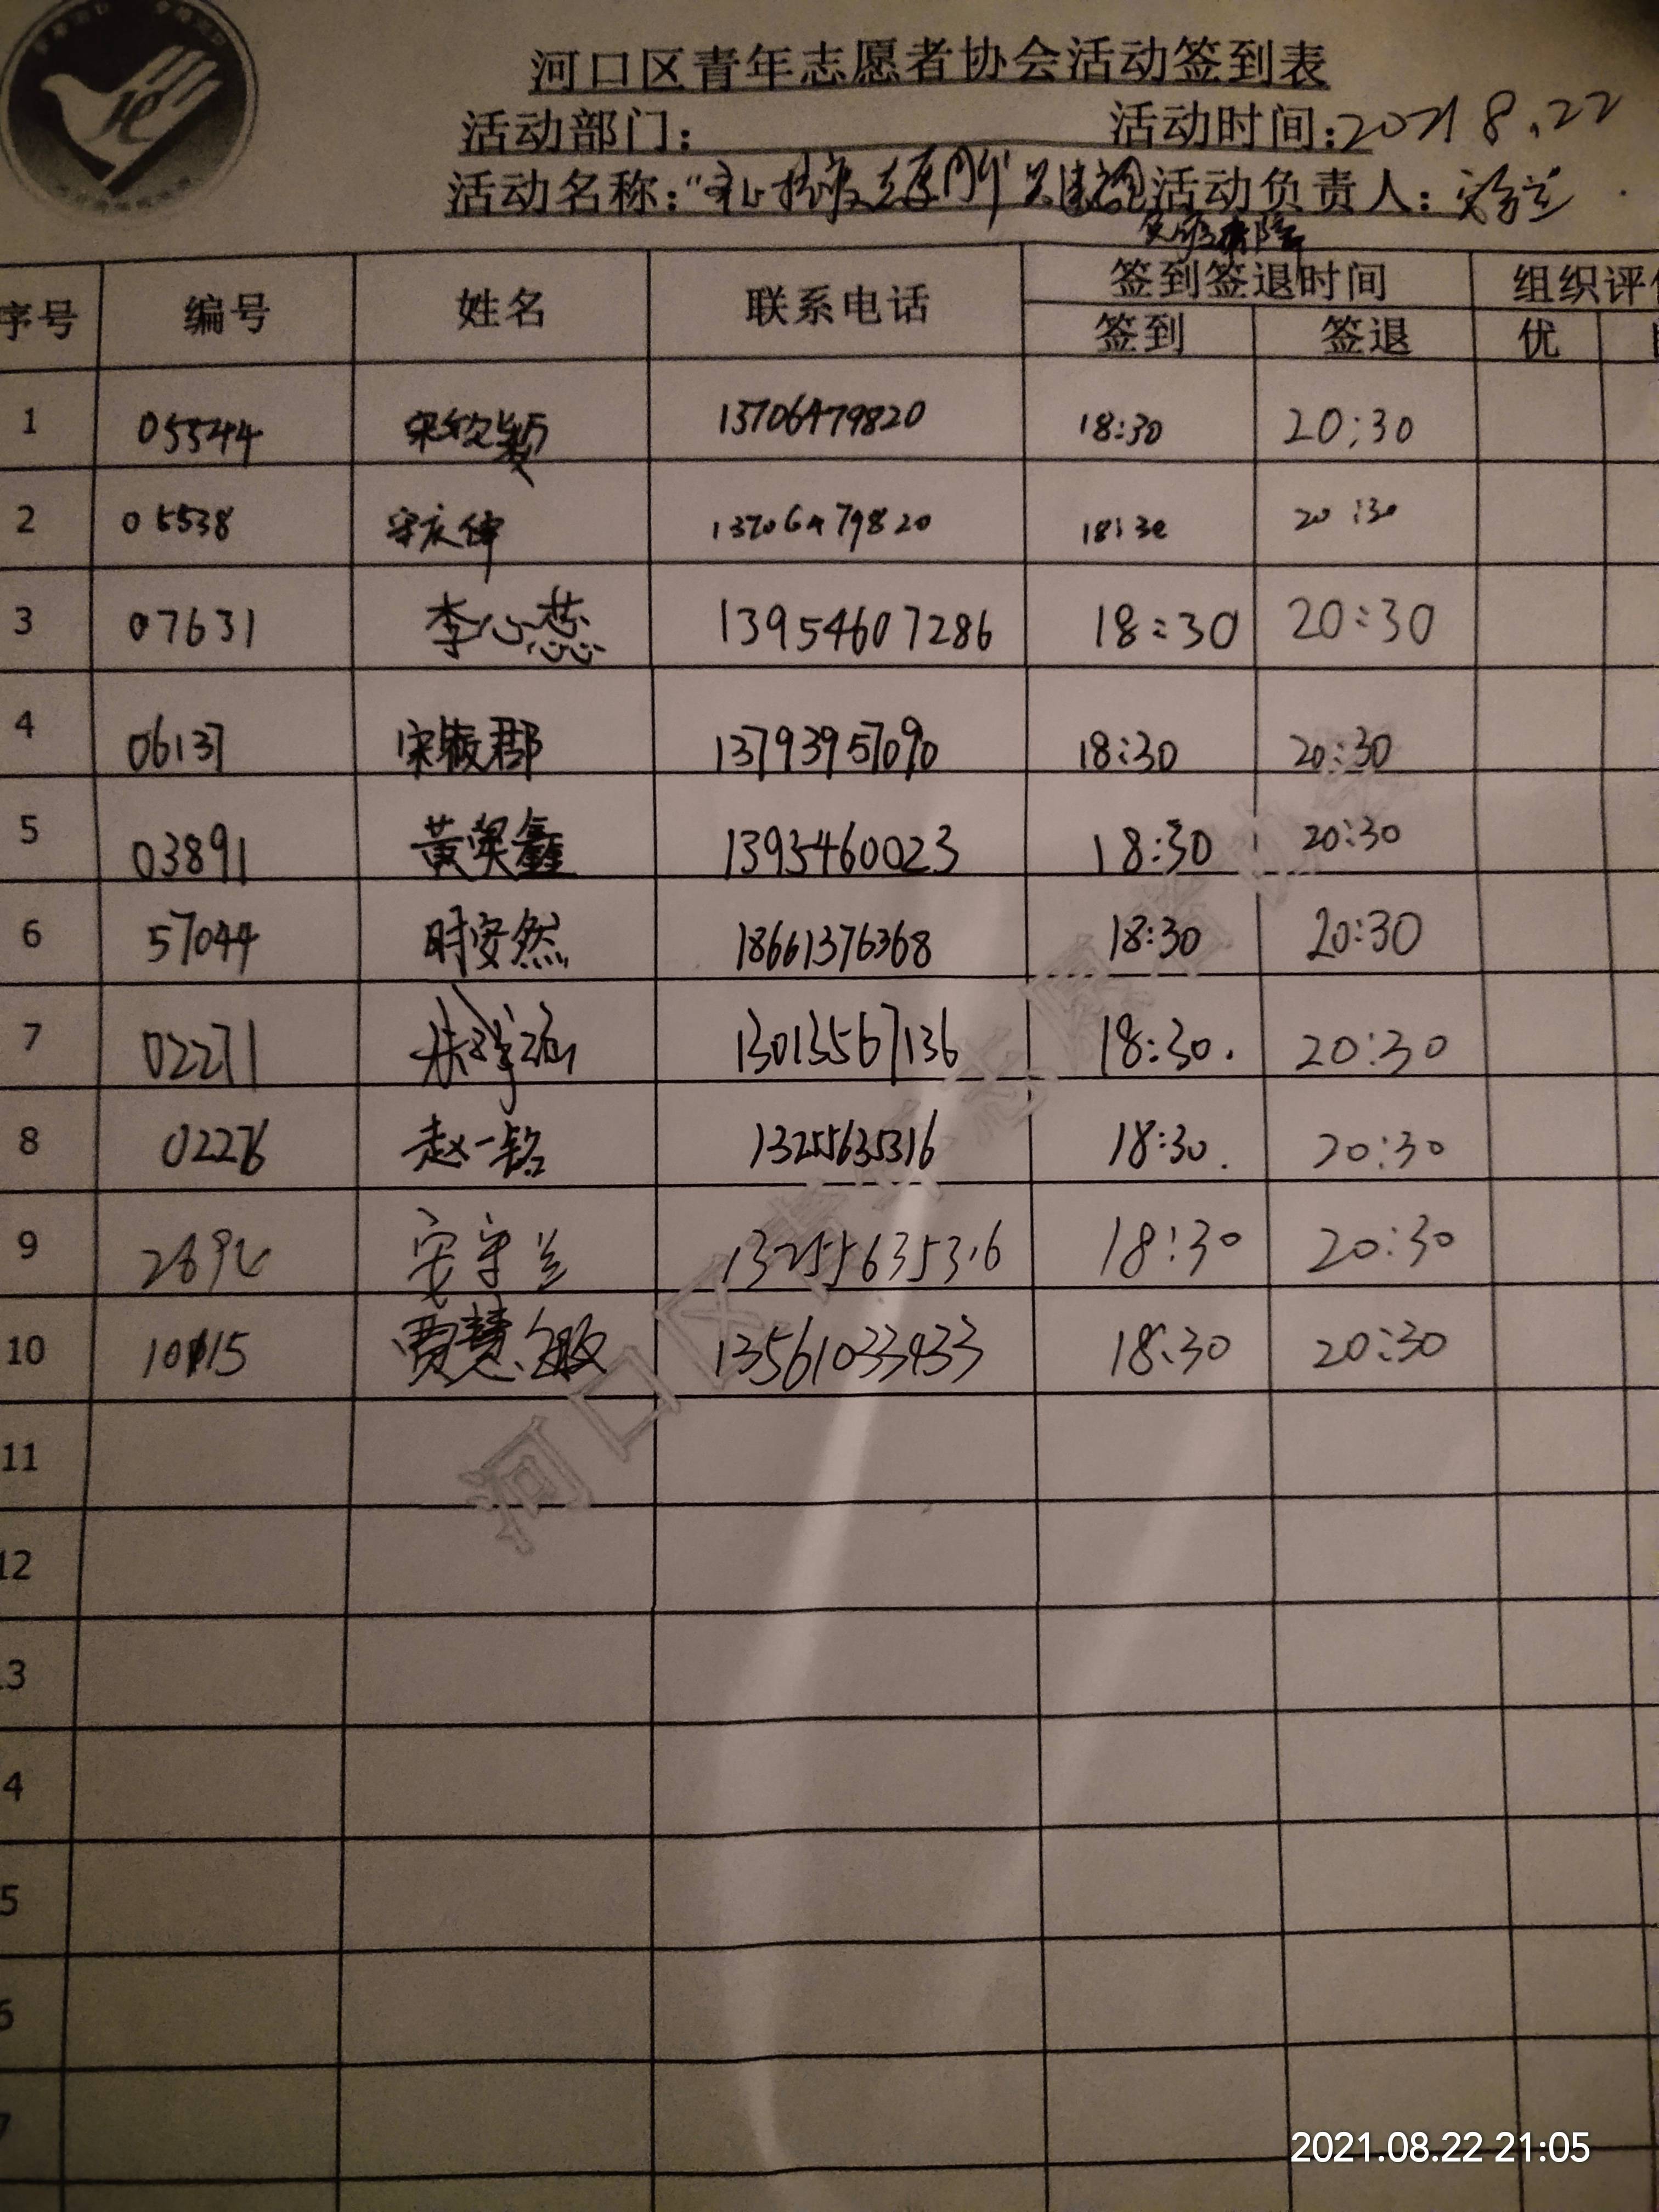 河口区青年志愿者协会活动签到表
活动部门： 活动时间：2021 8.22
活动名称： 活动负责人：
序号 编号 姓名 联系电话 签到签退时间 组织评
签到 签退 优
1 05544 13706479820 18:30 20:30
2 05538 13706479820 18:30 20:30
3 07631 李心蕊 13954607286 18:30 20:30
4 06137 13793957090 18:30 20:30
5 03891 黄奕鑫 1395460023 18:30 20:30
6 57044 时安然 18661376368 18:30 20:30
7 02271 13013567136 18:30. 20:30
8 02276 赵一铭 13255635316 18:30. 20:30
9 安守兰 13255635316 18:30 20:30
10 贾慧敏 13561033433 18:30 20:30
11
12
3
4
5
6
7
河口区青年志愿者协会
2021.08.22 21:05